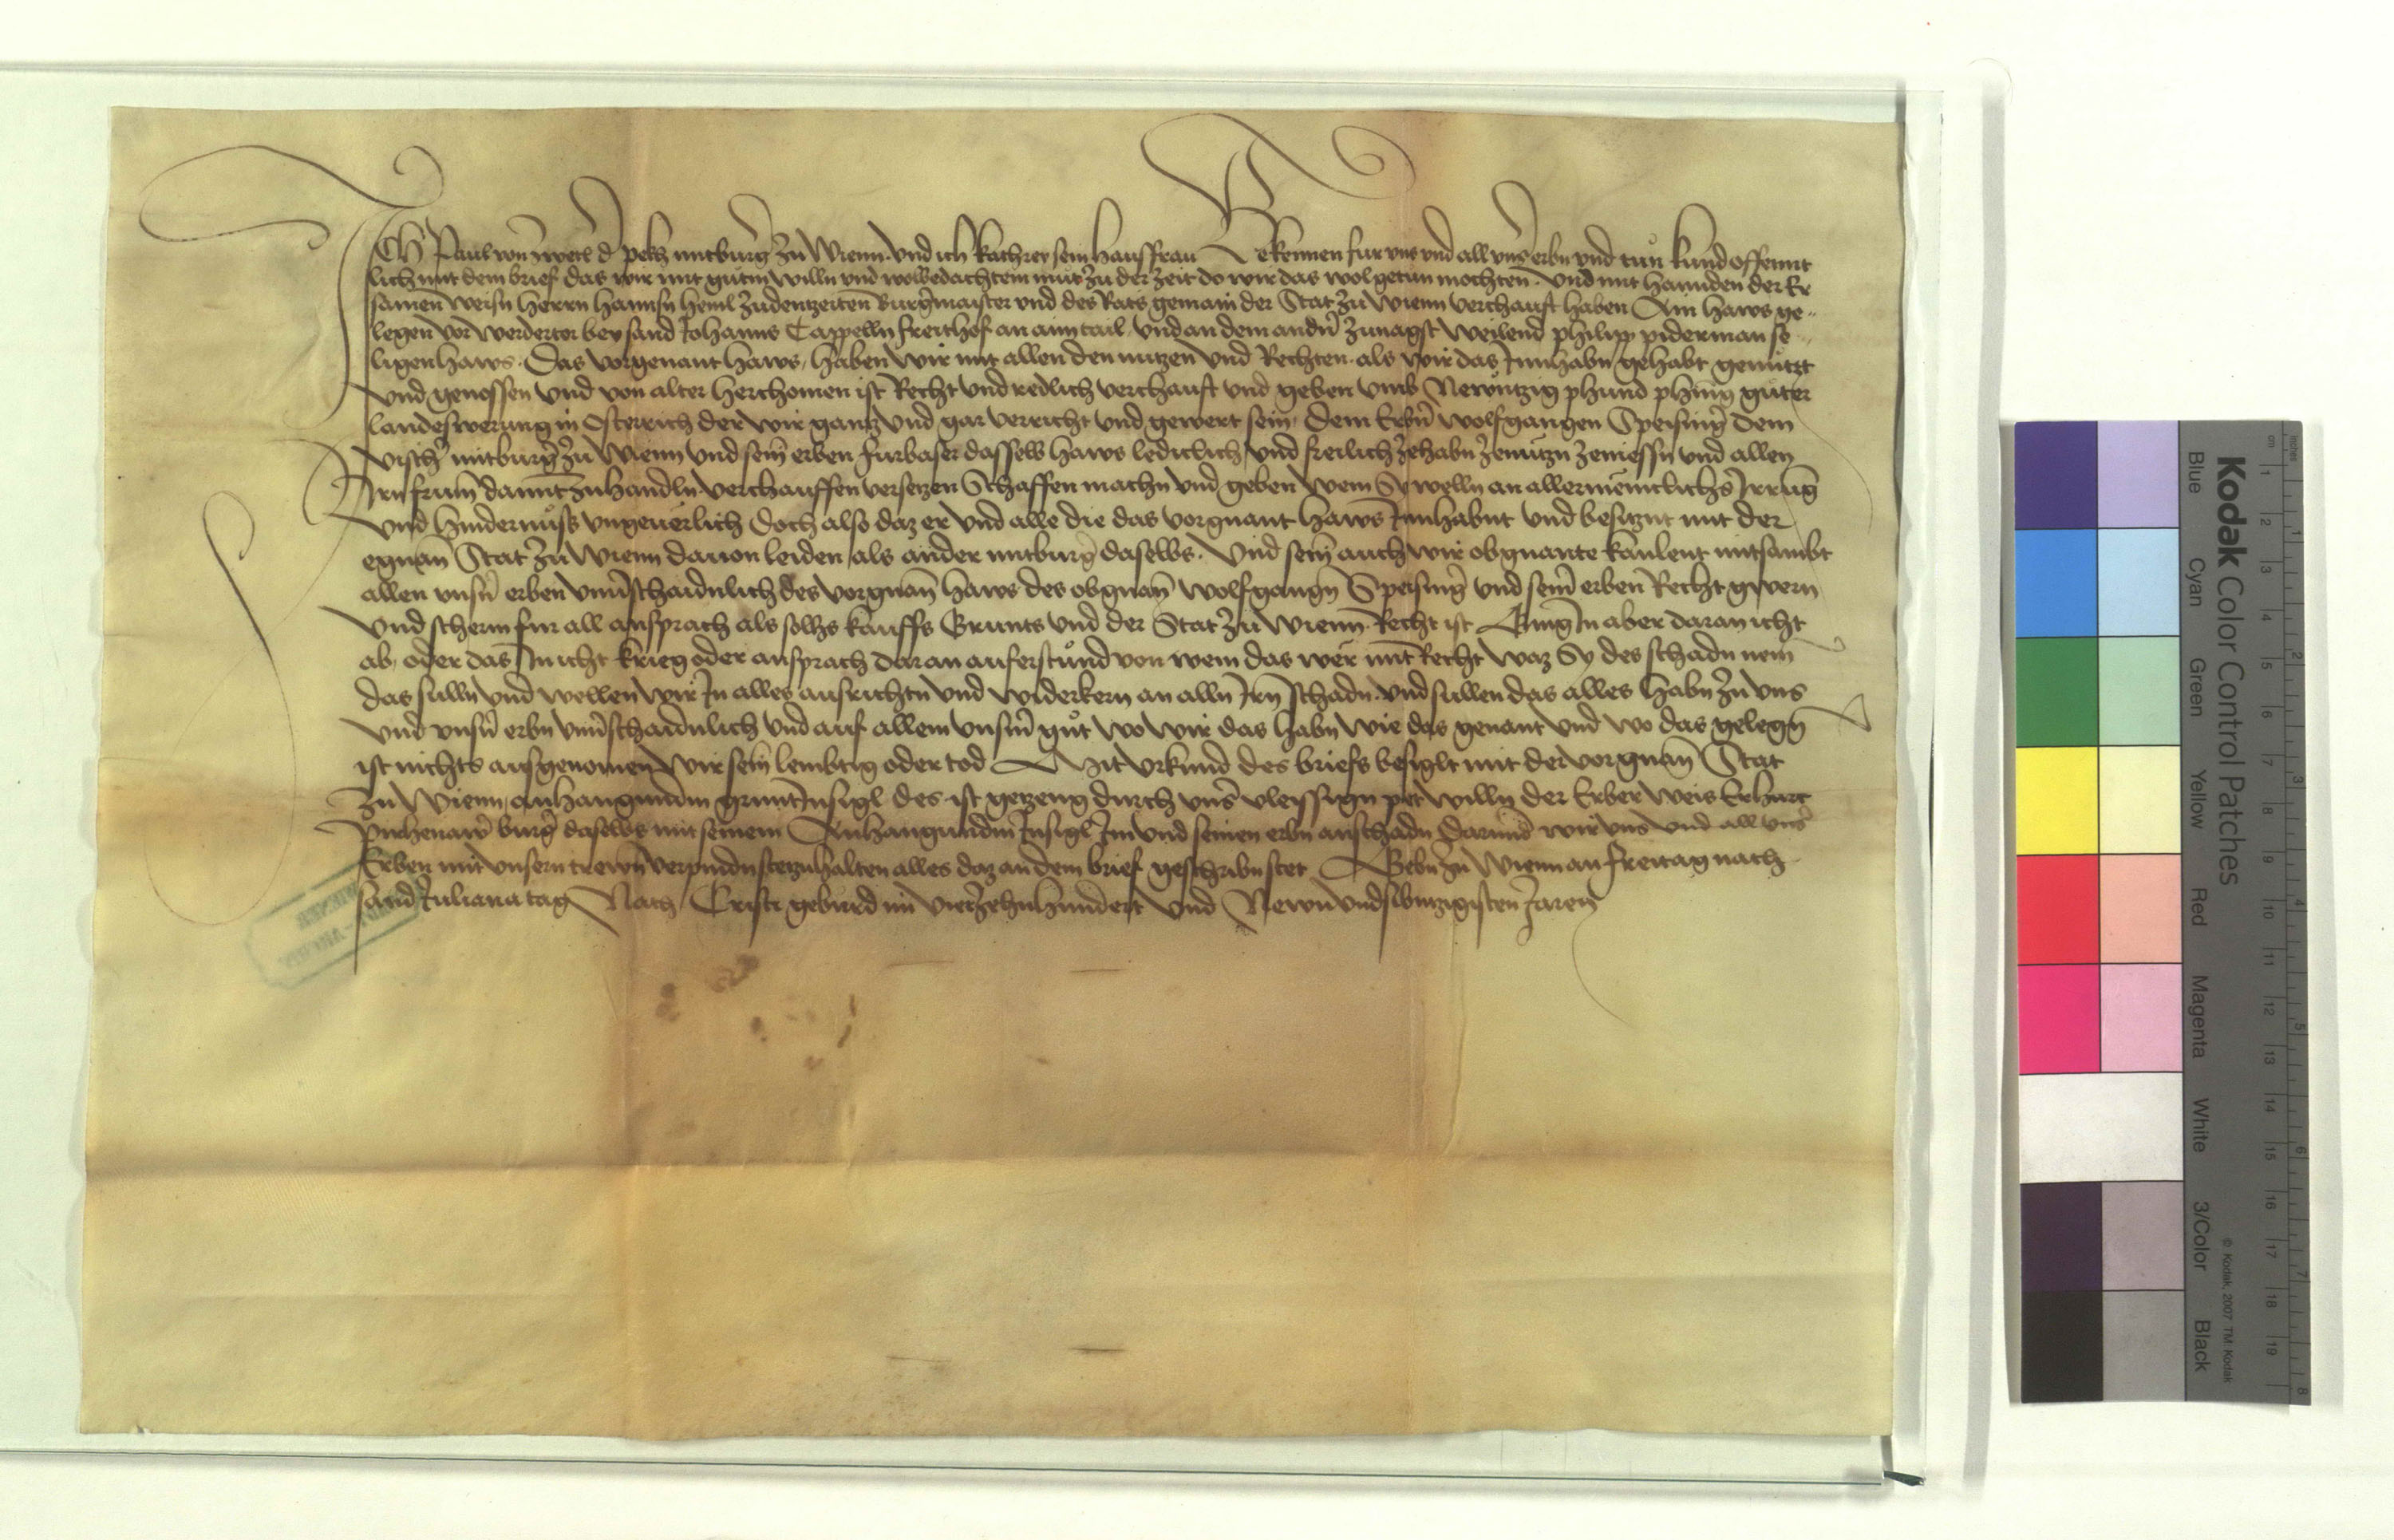 Ich Paul von Zwetl d' pekh mitburg' zu Wienn und ich Kathrey sein hausfrau Bekennen fur uns und all uns' erbn und tun kund offennt
lich mit dem brief das wir mit gutm willn und wolbedachtem mut zu der zeit do wir das wol getun mochten und mit hannden der Er
samen weisn herrn hannsn heml zudentzeiten Burg'maister und des Rats gemain der Stat zu Wienn verchauft haben Ain haws ge
legen vor werdertor bey sand Johanns Cappelln freithof an aim tail und an dem andn' zunagst weilend philipp piderman se
ligen haws. Das vorgenant haws haben wir mit allen den nutzen und Rechten als wir das Innhabn gehabt genutzt
und genossen und von alter herchomen ist Recht und redlich verchauft und geben umb Newntzig phund phenig guter
landeswerung in Osterrich der wir gantz und gar verricht und gewert sein dem Erbn' wolfgangen Speising' dem
visch' mitburg' zu Wienn und sein erben furbaser dasselb haws ledichlich und freilich zehabn zenutzn zeniessn und allen
Irn frumn damit zuhandln verchauffen versetzen Schaffen machn und geben wem Sy welln an allermeniclichs Irrung
und hindernuss ungeverlich Doch also daz er und alle die das vorgnant haws Innhabnt und besitznt mit der
egnan Stat zu Wienn davon leiden als ander mitburg' daselbs. Und sein auch wir obgnante kanlent mitsambt
allen unsn' erben unu'schaidnlich des vorgnan haws des obgnan wolfgangn Speising' und sein erben Recht gwern
und scherm fur all ansprach als solhs kauffs Grunts und der Stat zu Wienn Recht ist Gieng In aber daran icht
ab oder das In icht krieg oder ansprach daran auferstund von wem das wer mit Recht waz Sy des schadn nem
das sulln und wellen wir In alles ausrichtn und widerkern an alln Irn schadn und sullen das alles habn zu uns
und unsn' erbn unu'schaidnlich und auf allem unsm' gut wo wir das habn wie das genant und wo das gelegn
ist nichts ausgenomen wir sein lembtig oder tod Mit urkund des briefs besiglt mit der vorgnan Stat
zu Wienn anhangundm gruntInsigl des ist getzeug durch uns' vleissign pet willn der Erber weis Erhart
burg' daselbs mit seinem Anhangundm Insigl Im und seinen erbn anschadn darund' wir uns und all uns'
Erben mit unsern trewn verpindn stetzuhalten alles daz an dem brief geschribn stet Gebn zu Wienn an freitag nach
sand Juliana tag Nach Cristi geburd im vierzehnhundert und Newnundsibntzigisten Jaren
Kodak Color Control Patches
Blue Cyan Green Yellow Red Magenta White 3/Color Black
© Kodak, 2007 TM: Kodak
inches 1 2 3 4 5 6 7 8
cm 1 2 3 4 5 6 7 8 9 10 11 12 13 14 15 16 17 18 19